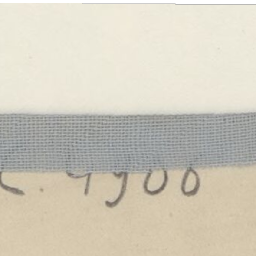 . 1900